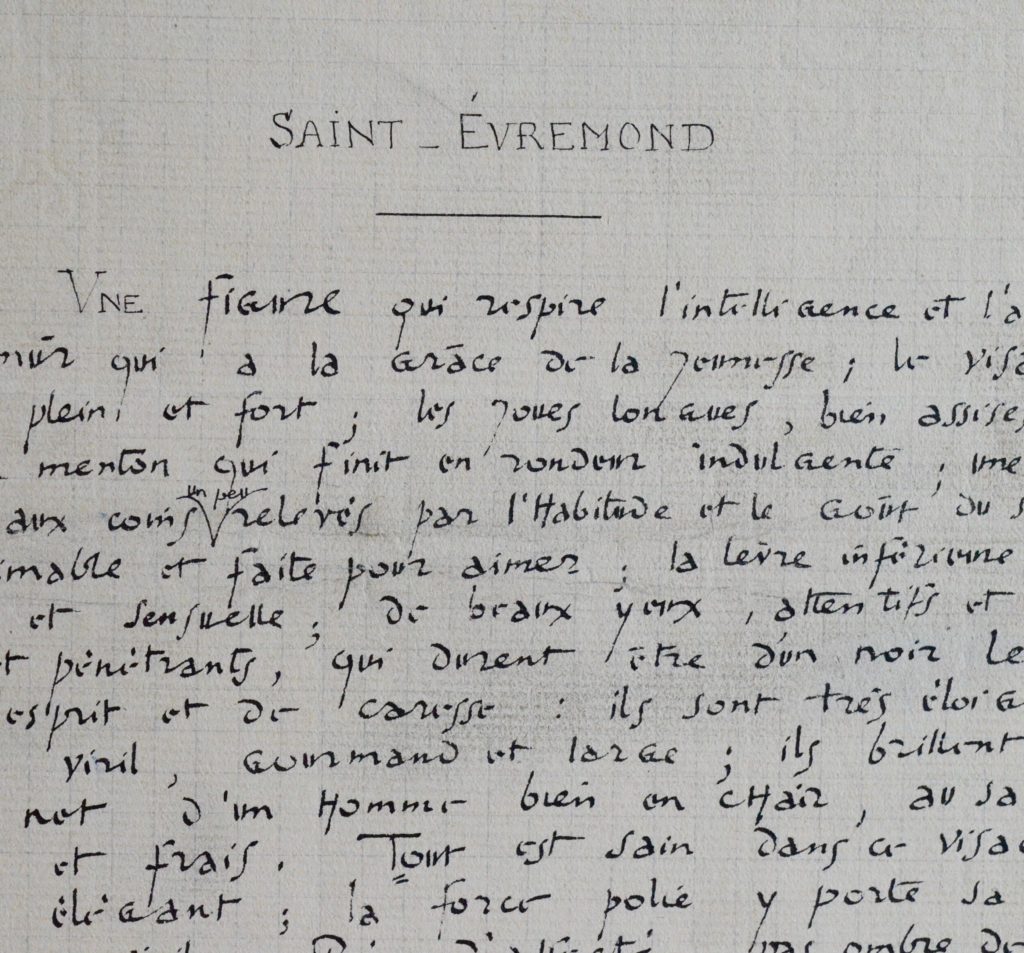 SAINT-ÉVREMOND
UNE figure qui respire l'intelligence et l'a
mûr qui a la grâce de la jeunesse ; le visa
plein et fort ; les joues longues, bien assises
menton qui finit en rondeur indulgente ; une
aux coins un peu relevés par l'Habitude et le goût du s
imable et faite pour aimer ; la lèvre inférieure
et sensuelle ; de beaux yeux, attentifs et
et pénétrants, qui durent être d'un noir
esprit et de caresse : ils sont très éloig
viril, gourmand et large ; ils brillent
net d'un Homme bien en cHair, au sa
et frais. Tout est sain dans ce visag
élégant ; la force polie y porte sa
pas ombre de